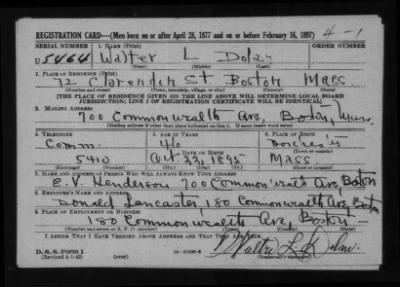 REGISTRATION CARD—(Men born on or after April 28, 1877 and on or before February 16, 1897) 4-1
SERIAL NUMBER 1. NAME (Print) ORDER NUMBER
U 5464 Walter L Dolan
(First) (Middle) (Last)
2. PLACE OF RESIDENCE (Print)
72 Clarendon St Boston Mass.
(Number and street) (Town, township, village, or city) (County) (State)
[THE PLACE OF RESIDENCE GIVEN ON THE LINE ABOVE WILL DETERMINE LOCAL BOARD
JURISDICTION; LINE 2 OF REGISTRATION CERTIFICATE WILL BE IDENTICAL]
3. MAILING ADDRESS
700 Commonwealth Ave, Boston, Mass.
(Mailing address if other than place indicated on line 2. If same insert word same)
4. TELEPHONE 5. AGE IN YEARS 6. PLACE OF BIRTH
Comm. 46 Dorchester
DATE OF BIRTH (Town or county)
5410 Oct 22, 1895 Mass.
(Exchange) (Number) (Mo.) (Day) (Yr.) (State or country)
7. NAME AND ADDRESS OF PERSON WHO WILL ALWAYS KNOW YOUR ADDRESS
E. V. Henderson 700 Commonwealth Ave, Boston
8. EMPLOYER'S NAME AND ADDRESS
Donald Lancaster, 180 Commonwealth Ave, Boston
9. PLACE OF EMPLOYMENT OR BUSINESS
180 Commonwealth Ave, Boston
(Number and street or R. F. D. number) (Town) (County) (State)
I AFFIRM THAT I HAVE VERIFIED ABOVE ANSWERS AND THAT THEY ARE TRUE.
D. S. S. Form 1
(Revised 4-1-42) (over) Walter L. Dolan
(Registrant's signature)